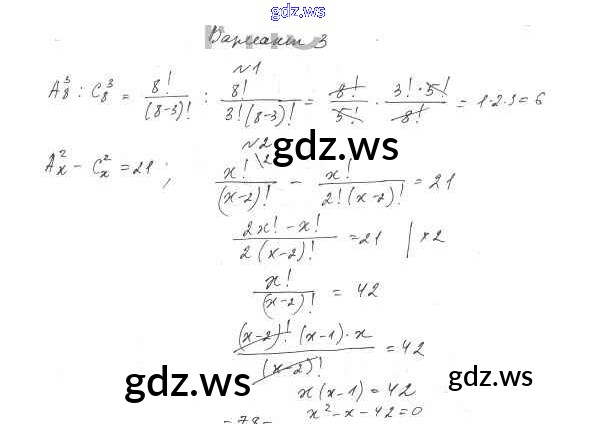 gdz.ws
Вариант 3
№1
A₈³ : C₈³ = 8!/(8-3)! : 8!/3!(8-3)! = 8!/5! · 3!·5!/8! = 1·2·3 = 6
№2
gdz.ws
Aₓ² - Cₓ² = 21 ; x!\2/(x-2)! - x!/2!(x-2)! = 21
2x! - x!/2(x-2)! = 21 | *2
x!/(x-2)! = 42
(x-2)!(x-1)·x/(x-2)! = 42
gdz.ws
gdz.ws
x(x-1) = 42
x² - x - 42 = 0
- 78 -